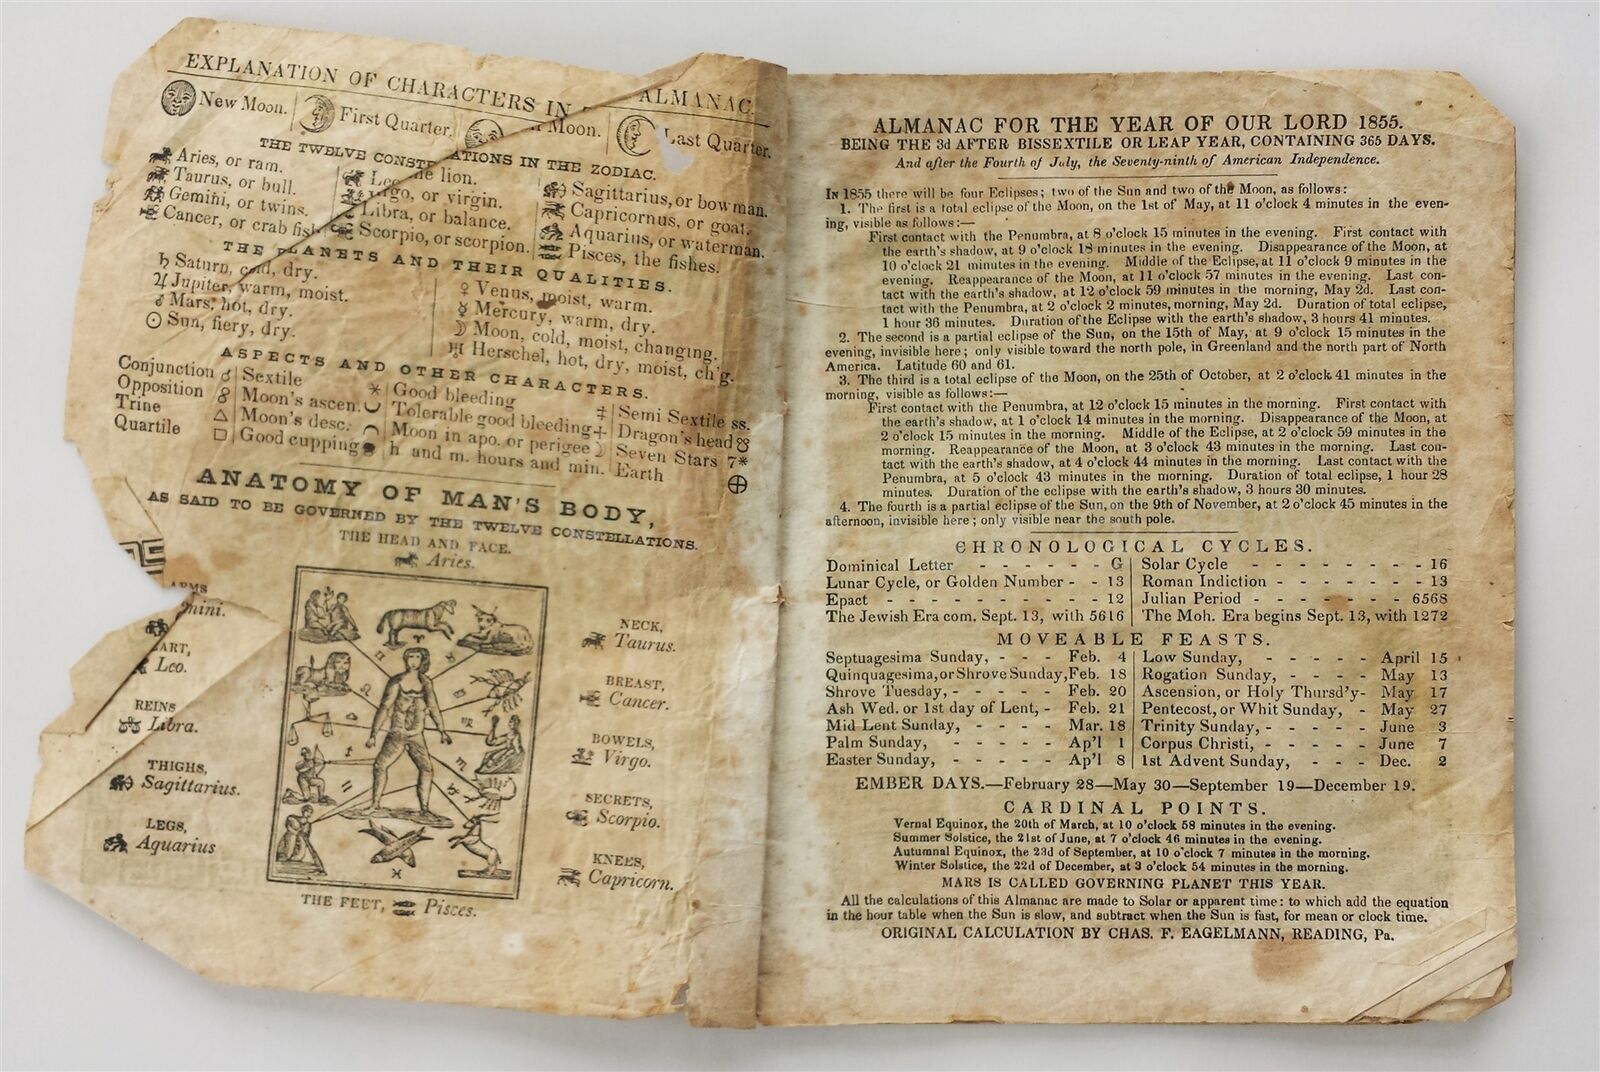 EXPLANATION OF CHARACTERS IN ALMANAC.
New Moon. First Quarter. Moon. Last Quarter.
THE TWELVE CONST ATIONS IN THE ZODIAC.
Aries, or ram.
Taurus, or bull.
Gemini, or twins.
Cancer, or crab fish
Leo the lion.
Virgo, or virgin.
Libra, or balance.
Scorpio, or scorpion.
Sagittarius, or bowman.
Capricornus, or goat.
Aquarius, or waterman.
Pisces, the fishes.
THE PLANETS AND THEIR QUALITIES.
♄ Saturn, cold, dry.
♃ Jupiter, warm, moist.
♂ Mars, hot, dry.
☉ Sun, fiery, dry.
♀ Venus, moist, warm.
☿ Mercury, warm, dry.
☽ Moon, cold, moist, changing.
♅ Herschel, hot, dry, moist, ch'g.
ASPECTS AND OTHER CHARACTERS.
Conjunction ☌
Opposition ☍
Trine △
Quartile □
Sextile *
Moon's ascen.
Moon's desc.
Good cupping
Good bleeding ‡
Tolerable good bleeding +
Moon in apo. or perigee ☽
h and m. hours and min.
Semi Sextile ss.
Dragon's head ☊
Seven Stars 7*
Earth ⊕
ANATOMY OF MAN'S BODY,
AS SAID TO BE GOVERNED BY THE TWELVE CONSTELLATIONS.
THE HEAD AND FACE.
Aries.
ARMS
mini.
ART,
Leo.
REINS
Libra.
THIGHS,
Sagittarius.
LEGS,
Aquarius
NECK,
Taurus.
BREAST,
Cancer.
BOWELS,
Virgo.
SECRETS,
Scorpio.
KNEES,
Capricorn.
THE FEET, Pisces.
ALMANAC FOR THE YEAR OF OUR LORD 1855.
BEING THE 3d AFTER BISSEXTILE OR LEAP YEAR, CONTAINING 365 DAYS.
And after the Fourth of July, the Seventy-ninth of American Independence.
IN 1855 there will be four Eclipses; two of the Sun and two of the Moon, as follows:
1. The first is a total eclipse of the Moon, on the 1st of May, at 11 o'clock 4 minutes in the even-
ing, visible as follows:—
First contact with the Penumbra, at 8 o'clock 15 minutes in the evening. First contact with
the earth's shadow, at 9 o'clock 18 minutes in the evening. Disappearance of the Moon, at
10 o'clock 21 minutes in the evening. Middle of the Eclipse, at 11 o'clock 9 minutes in the
evening. Reappearance of the Moon, at 11 o'clock 57 minutes in the evening. Last con-
tact with the earth's shadow, at 12 o'clock 59 minutes in the morning, May 2d. Last con-
tact with the Penumbra, at 2 o'clock 2 minutes, morning, May 2d. Duration of total eclipse,
1 hour 36 minutes. Duration of the Eclipse with the earth's shadow, 3 hours 41 minutes.
2. The second is a partial eclipse of the Sun, on the 15th of May, at 9 o'clock 15 minutes in the
evening, invisible here; only visible toward the north pole, in Greenland and the north part of North
America. Latitude 60 and 61.
3. The third is a total eclipse of the Moon, on the 25th of October, at 2 o'clock 41 minutes in the
morning, visible as follows:—
First contact with the Penumbra, at 12 o'clock 15 minutes in the morning. First contact with
the earth's shadow, at 1 o'clock 14 minutes in the morning. Disappearance of the Moon, at
2 o'clock 15 minutes in the morning. Middle of the Eclipse, at 2 o'clock 59 minutes in the
morning. Reappearance of the Moon, at 3 o'clock 43 minutes in the morning. Last con-
tact with the earth's shadow, at 4 o'clock 44 minutes in the morning. Last contact with the
Penumbra, at 5 o'clock 43 minutes in the morning. Duration of total eclipse, 1 hour 28
minutes. Duration of the eclipse with the earth's shadow, 3 hours 30 minutes.
4. The fourth is a partial eclipse of the Sun, on the 9th of November, at 2 o'clock 45 minutes in the
afternoon, invisible here; only visible near the south pole.
CHRONOLOGICAL CYCLES.
Dominical Letter - - - - - - G
Lunar Cycle, or Golden Number - - 13
Epact - - - - - - - - - - 12
The Jewish Era com. Sept. 13, with 5616
Solar Cycle - - - - - - - - 16
Roman Indiction - - - - - - - 13
Julian Period - - - - - - - 6568
The Moh. Era begins Sept. 13, with 1272
MOVEABLE FEASTS.
Septuagesima Sunday, - - - Feb. 4
Quinquagesima, or Shrove Sunday, Feb. 18
Shrove Tuesday, - - - - - Feb. 20
Ash Wed. or 1st day of Lent, - Feb. 21
Mid Lent Sunday, - - - - Mar. 18
Palm Sunday, - - - - - Ap'l 1
Easter Sunday, - - - - - Ap'l 8
Low Sunday, - - - - - April 15
Rogation Sunday, - - - - May 13
Ascension, or Holy Thursd'y- May 17
Pentecost, or Whit Sunday, - May 27
Trinity Sunday, - - - - - June 3
Corpus Christi, - - - - - June 7
1st Advent Sunday, - - - Dec. 2
EMBER DAYS.—February 28—May 30—September 19—December 19.
CARDINAL POINTS.
Vernal Equinox, the 20th of March, at 10 o'clock 58 minutes in the evening.
Summer Solstice, the 21st of June, at 7 o'clock 46 minutes in the evening.
Autumnal Equinox, the 23d of September, at 10 o'clock 7 minutes in the morning.
Winter Solstice, the 22d of December, at 3 o'clock 54 minutes in the morning.
MARS IS CALLED GOVERNING PLANET THIS YEAR.
All the calculations of this Almanac are made to Solar or apparent time: to which add the equation
in the hour table when the Sun is slow, and subtract when the Sun is fast, for mean or clock time.
ORIGINAL CALCULATION BY CHAS. F. EAGELMANN, READING, Pa.